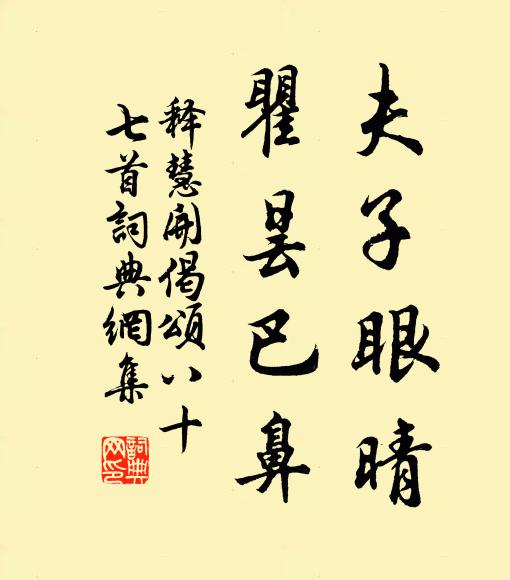 夫子眼晴
瞿昙巴鼻
释慧開偈頌八十
七首詞典網集
詞典
网印